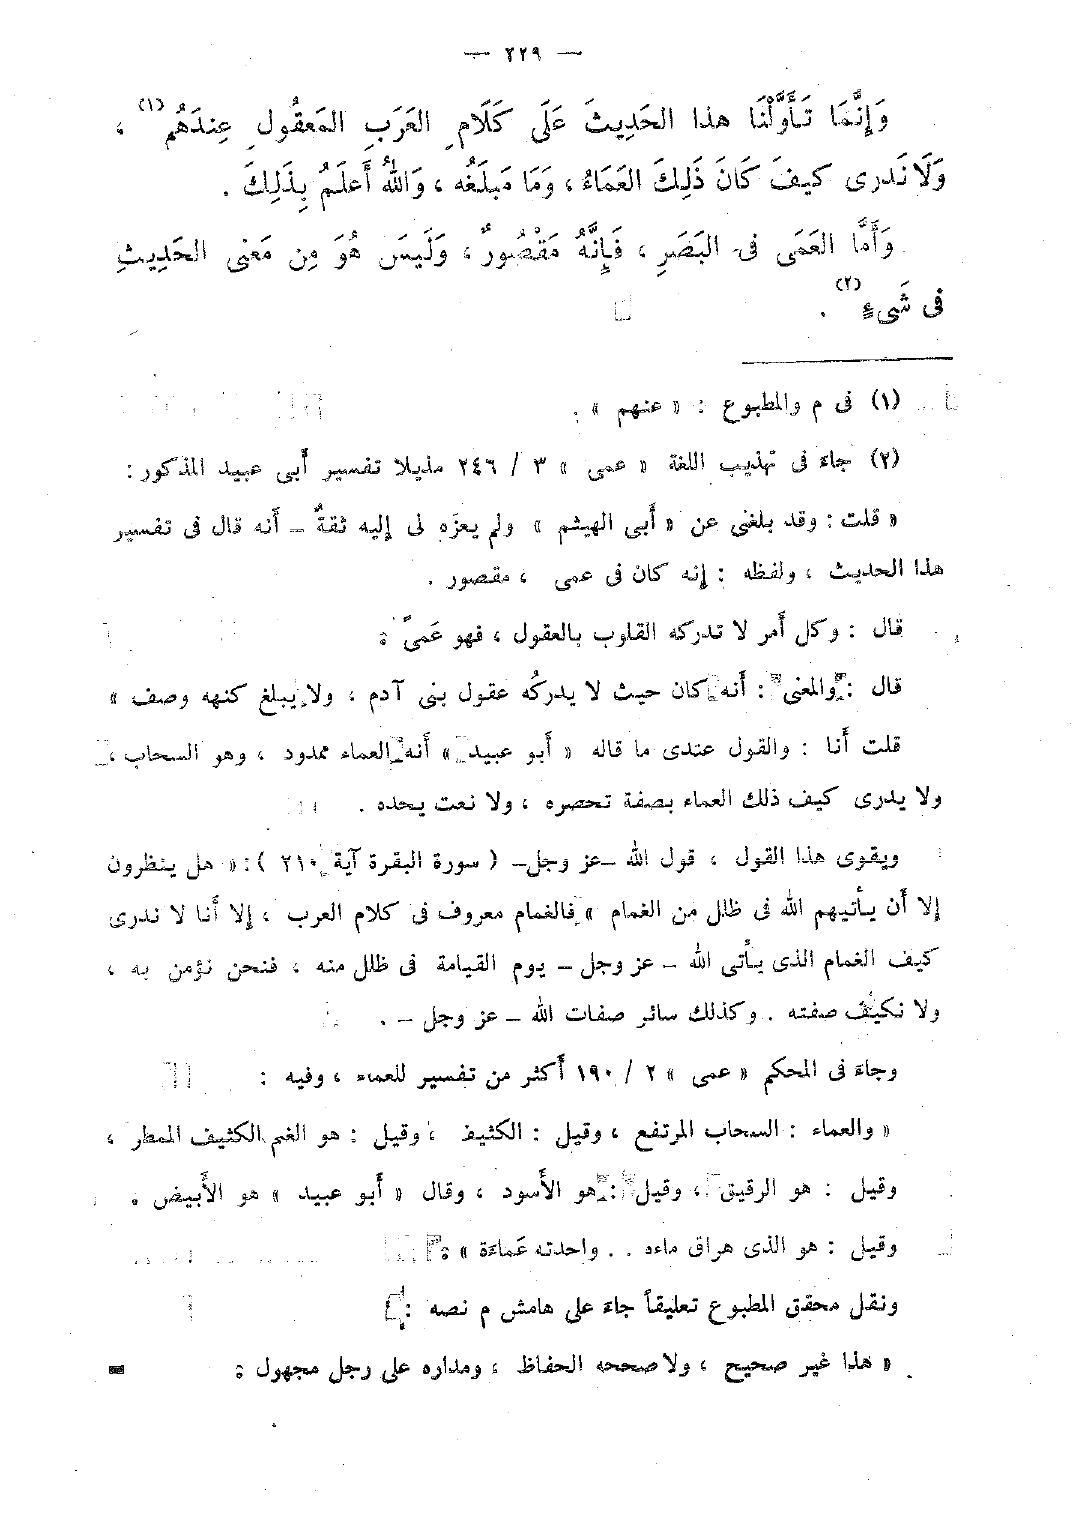 — ٢٢٩ —
وَإِنَّمَا تَأَوَّلْنَا هذا الحَدِيثَ عَلَى كَلَامِ العَرَبِ المَعقُولِ عِندَهُم (١) ،
وَلَا نَدرى كيفَ كَانَ ذَلِكَ العَمَاءُ ، وَمَا مَبلَغُه ، وَاللهُ أَعلَمُ بِذَلِكَ .
وَأَمَّا العَمَى فى البَصَرِ ، فَإِنَّهُ مَقْصُورٌ ، وَلَيسَ هُوَ مِن مَعْنى الحَدِيثِ
فى شَىءٍ (٢) .
(١) فى م والمطبوع : « عنهم » .
(٢) جاء فى تهذيب اللغة « عمى » ٣ / ٢٤٦ مذيلا تفسير أبى عبيد المذكور :
« قلت : وقد بلغنى عن « أبى الهيثم » ولم يعزه لى إليه ثقةٌ – أنه قال فى تفسير
هذا الحديث ، ولفظه : إنه كان فى عمى ، مقصور .
قال : وكل أمر لا تدركه القلوب بالعقول ، فهو عَمىً .
قال : والمعنى : أنه كان حيث لا يدركُه عقول بنى آدم ، ولا يبلغ كنهه وصف »
قلت أنا : والقول عندى ما قاله « أبو عبيد » أنه العماء ممدود ، وهو السحاب ،
ولا يدرى كيف ذلك العماء بصفة تحصره ، ولا نعت يحده .
ويقوى هذا القول ، قول الله –عز وجل– ( سورة البقرة آية ٢١٠ ) : « هل ينظرون
إلا أن يأتيهم الله فى ظلل من الغمام » فالغمام معروف فى كلام العرب ، إلا أنا لا ندرى
كيف الغمام الذى يأتى الله – عز وجل – يوم القيامة فى ظلل منه ، فنحن نؤمن به ،
ولا نكيف صفته . وكذلك سائر صفات الله – عز وجل – .
وجاء فى المحكم « عمى » ٢ / ١٩٠ أكثر من تفسير للعماء ، وفيه :
« والعماء : السحاب المرتفع ، وقيل : الكثيف ، وقيل : هو الغم الكثيف الممطر ،
وقيل : هو الرقيق ، وقيل : هو الأسود ، وقال « أبو عبيد » هو الأبيض .
وقيل : هو الذى هراق ماءه . . واحدته عَماءَة » .
ونقل محقق المطبوع تعليقاً جاء على هامش م نصه :
« هذا غير صحيح ، ولا صححه الحفاظ ، ومداره على رجل مجهول .
=